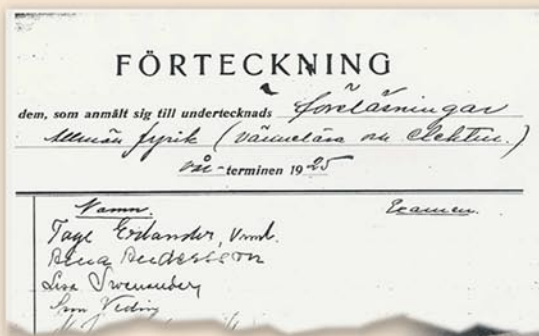 FÖRTECKNING
dem, som anmält sig till undertecknads föreläsningar
Allmän fysik (värmelära och elektr.)
vår-terminen 1925
Namn. Examen.
Tage Erlander,
Andersson
Lisa